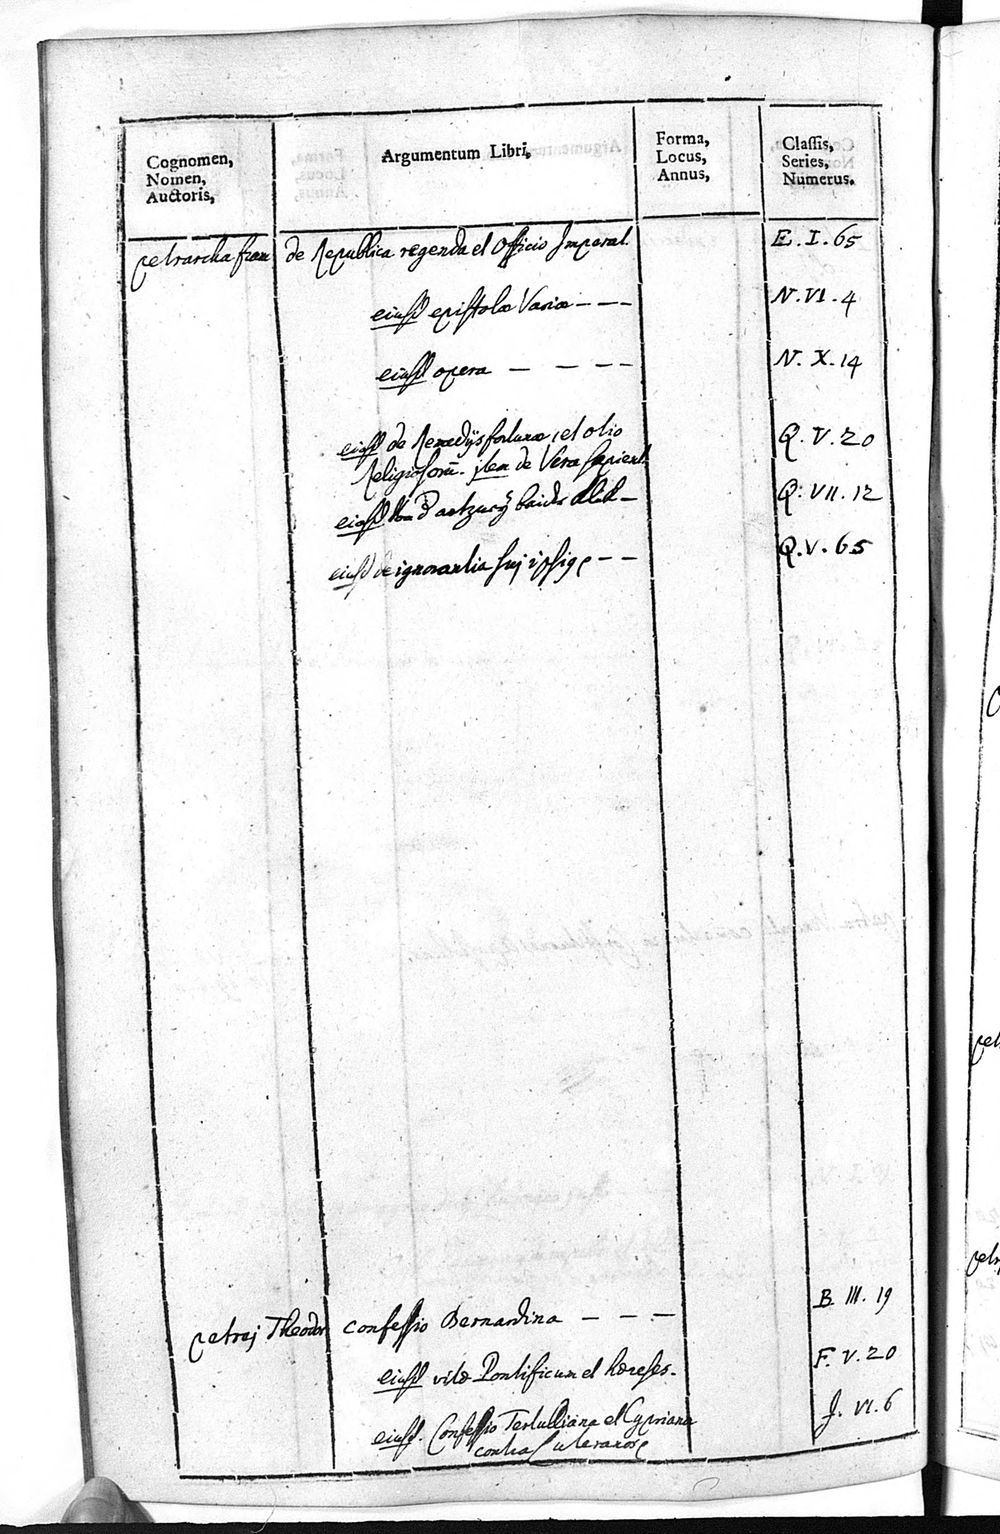 Cognomen,
Nomen,
Auctoris,
Argumentum Libri,
Forma,
Locus,
Annus,
Classis,
Series,
Numerus.
petrarcha fran de Republica regenda et Officio Imperat. E. I. 65
eiusd epistolæ Variæ - - - N. VI. 4
eiusd opera - - - - N. X. 14
eiusd de Remedijs fortunæ, et otio Q. V. 20
Religiosorū. jtem de Vera sapient.
eiusd Von d artzneÿ baider Q. VII. 12
eiusd de ignorantia suj ipsiq - - Q. V. 65
petrej Theodor confessio Bernardina - - - B III. 19
eiusd vitæ Pontificum et hæreses. F. V. 20
eiusd. Confessio Tertulliana et Cypriana J. VI. 6
contra Luteranos